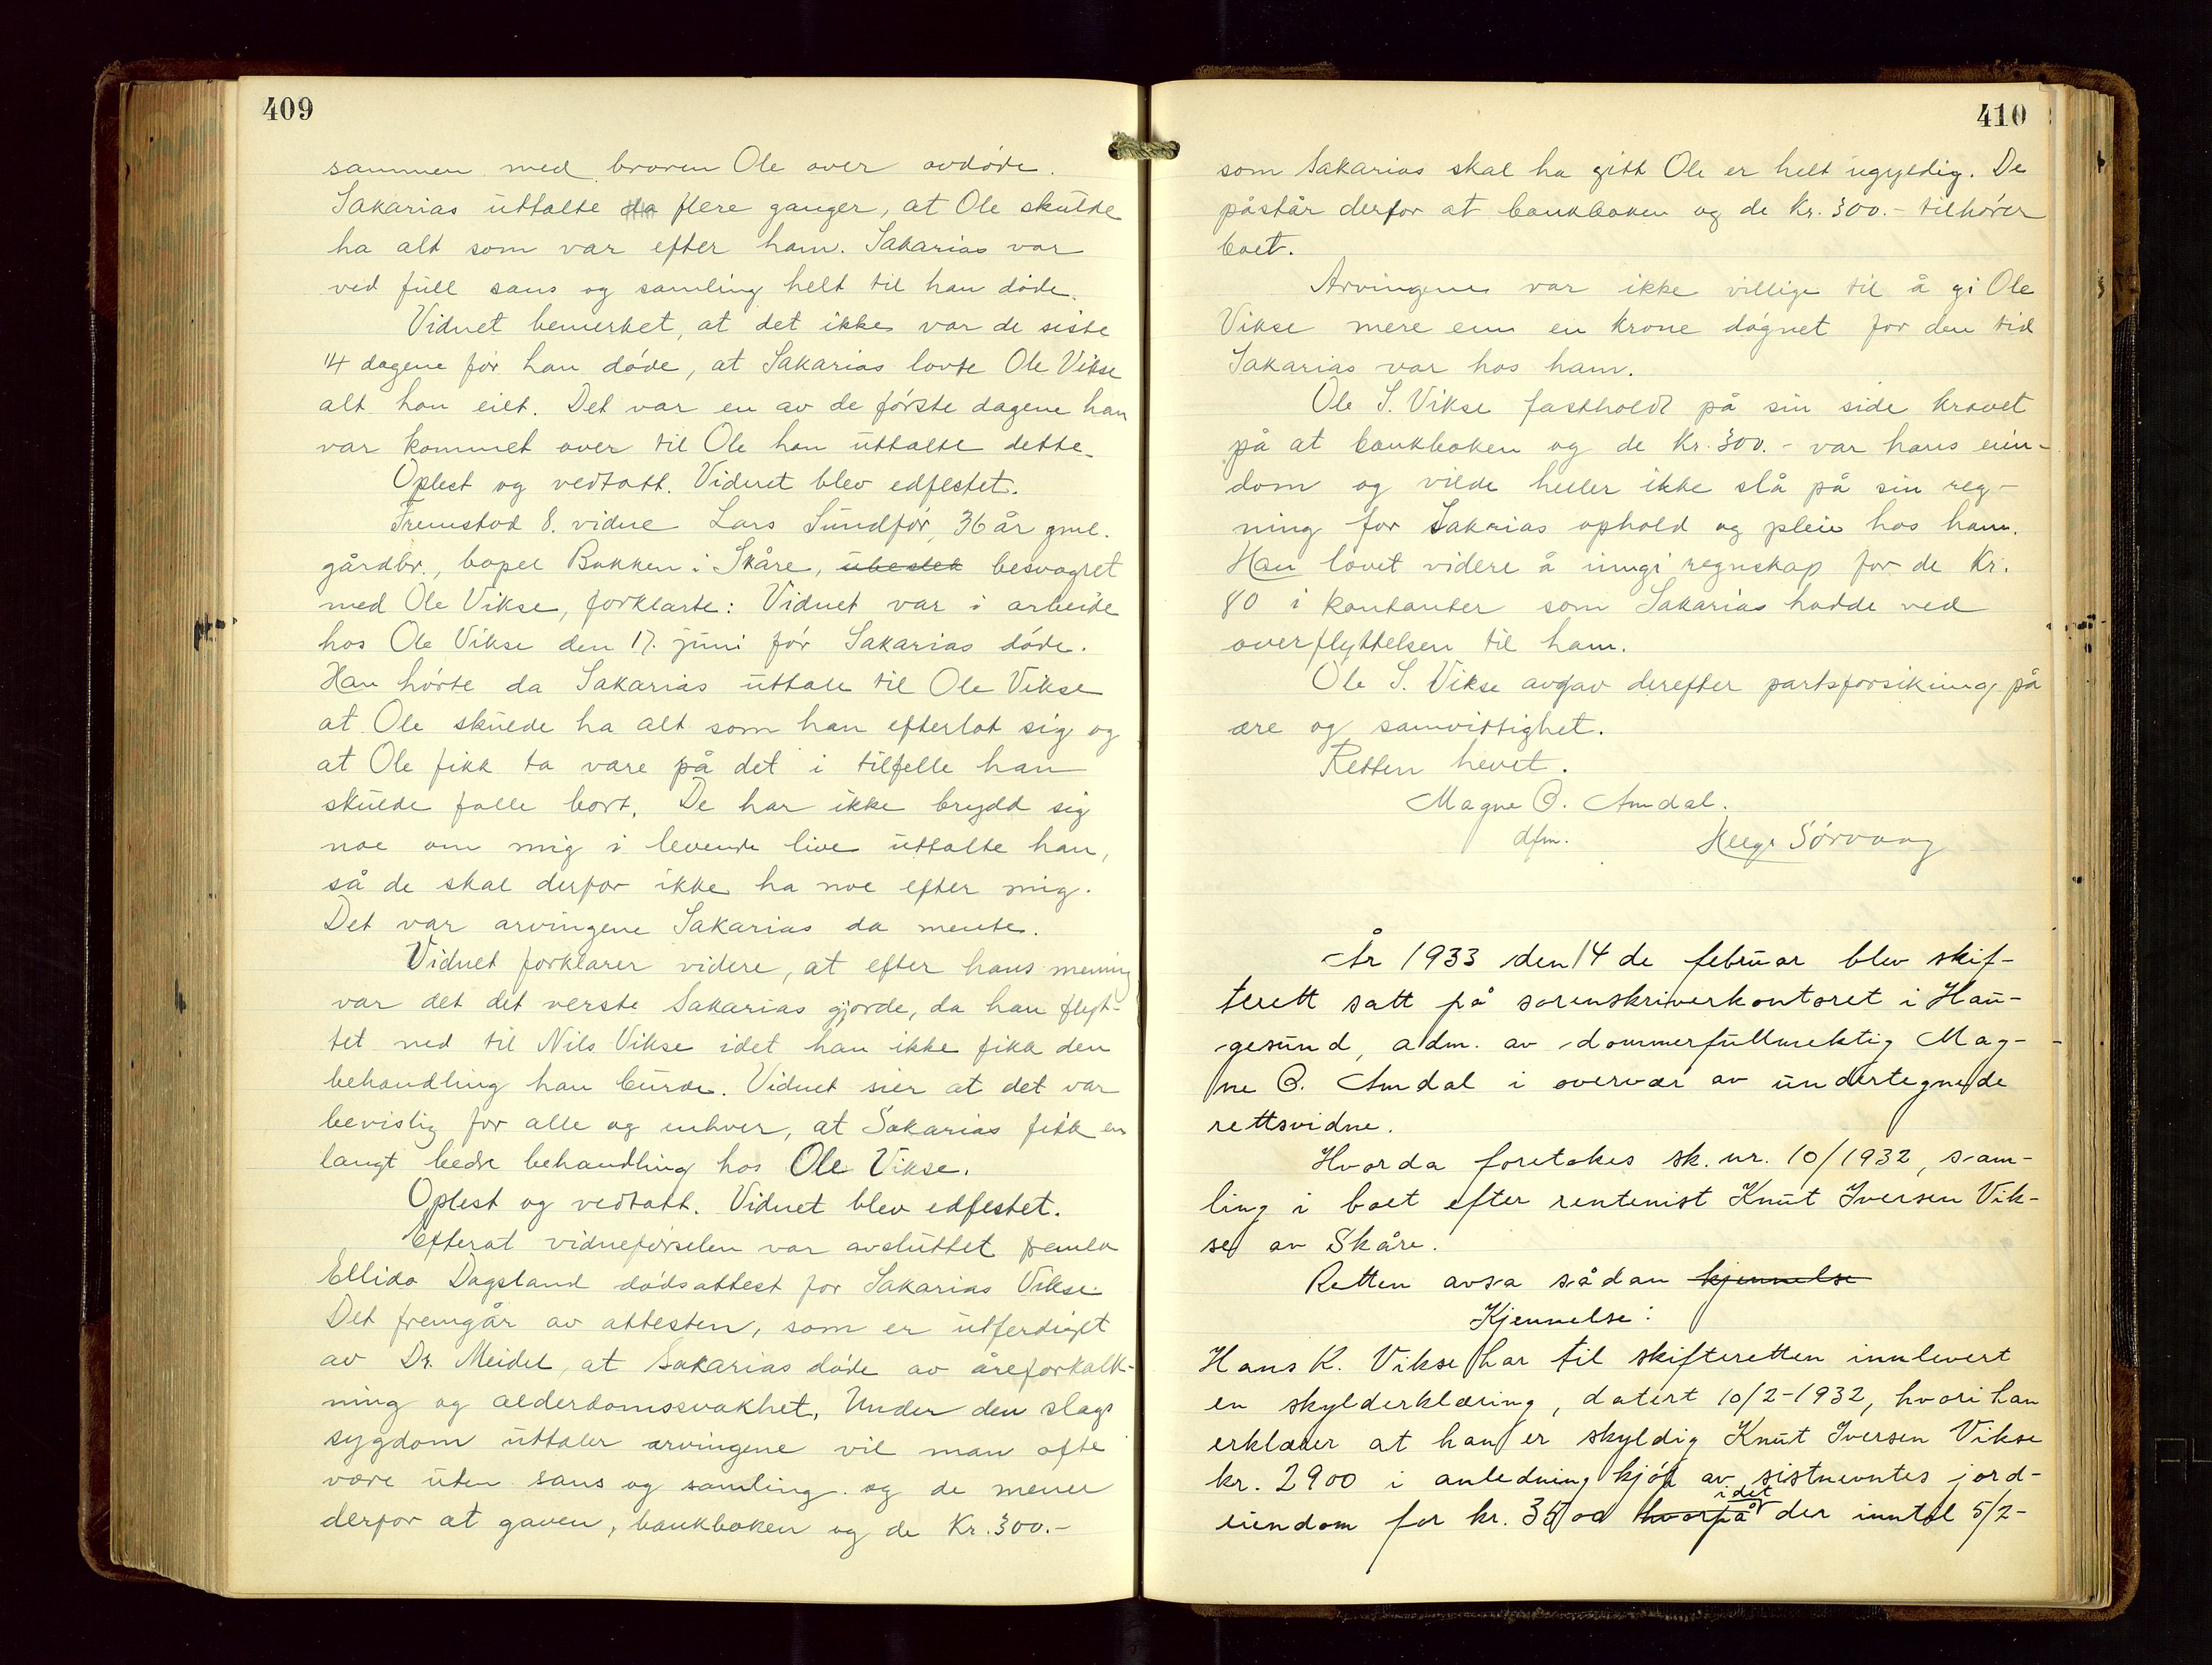 409
sammen med broren Ole over avdøde.
Sakarias uttalte da flere ganger, at Ole skulde
ha alt som var efter ham. Sakarias var
ved full sans og samling helt til han døde.
Vidnet bemerket, at det ikke var de siste
14 dagene før han døde, at Sakarias lovte Ole Vikse
alt han eiet. Det var en av de første dagene han
var kommet over til Ole han uttalte dette.
Oplest og vedtatt. Vidnet blev edfestet.
Fremstod 8. vidne Lars Sundfør, 36 år gml.
gårdbr., bopel Bakken i Skåre, ubeslek besvogret
med Ole Vikse, forklarte: Vidnet var i arbeide
hos Ole Vikse den 17. juni før Sakarias døde.
Han hørte da Sakarias uttale til Ole Vikse
at Ole skulde ha alt som han efterlot sig og
at Ole fikk ta vare på det i tilfelle han
skulde falle bort. De har ikke brydd sig
noe om mig i levende live uttalte han,
så de skal derfor ikke ha noe efter mig.
Det var arvingene Sakarias da mente.
Vidnet forklarer videre, at efter hans mening
var det det verste Sakarias gjorde, da han flyt-
tet ned til Nils Vikse idet han ikke fikk den
behandling han burde. Vidnet sier at det var
bevislig for alle og enhver, at Sakarias fikk en
langt bedre behandling hos Ole Vikse.
Oplest og vedtatt. Vidnet blev edfestet.
Efterat vidneførselen var avsluttet femla
Ellida Dagsland dødsattest for Sakarias Vikse.
Det fremgår av attesten, som er utferdiget
av Dr. Meidel, at Sakarias døde av åreforkalk-
ning og alderdomssvakhet. Under den slags
sygdom uttaler arvingene vil man ofte
være uten sans og samling og de mener
derfor at gaven, bankboken og de Kr. 300.-
410
som Sakarias skal ha gitt Ole er helt ugyldig. De
påstår derfor at bankboken og de Kr. 300.- tilhører
boet.
Arvingene var ikke villige til å gi Ole
Vikse mere enn en krone døgnet for den tid
Sakarias var hos ham.
Ole S. Vikse fastholdt på sin side kravet
på at bankboken og de Kr. 300.- var hans eien-
dom og vilde heller ikke slå på sin reg-
ning for Sakarias ophold og pleie hos ham.
Han lovet videre å inngi regnskap for de Kr.
80 i kontanter som Sakarias hadde ved
overflyttelsen til ham.
Ole S. Vikse avgav derefter partsforsikring på
ære og samvittighet.
Retten hevet.
Magne O. Amdal.
dfm. Helge Sørvaag
År 1933 den 14 de februar blev skif-
terett satt på sorenskriverkontoret i Hau-
gesund, adm. av dommerfullmektig Mag-
ne O. Amdal i overvær av undertegnede
rettsvidne.
Hvorda foretokes sk. nr. 10/1932, sam-
ling i boet efter rentenist Knut Iversen Vik-
se av Skåre.
Retten avsa sådan kjennelse
Kjennelse:
Hans K. Vikse har til skifteretten innlevert
en skylderklæring, datert 10/2-1932, hvori han
erklærer at han er skyldig Knut Iversen Vikse
kr. 2900 i anledning kjøp av sistnevntes jord-
eiendom for kr. 3500 hvorpå idet der inntil 5/2-